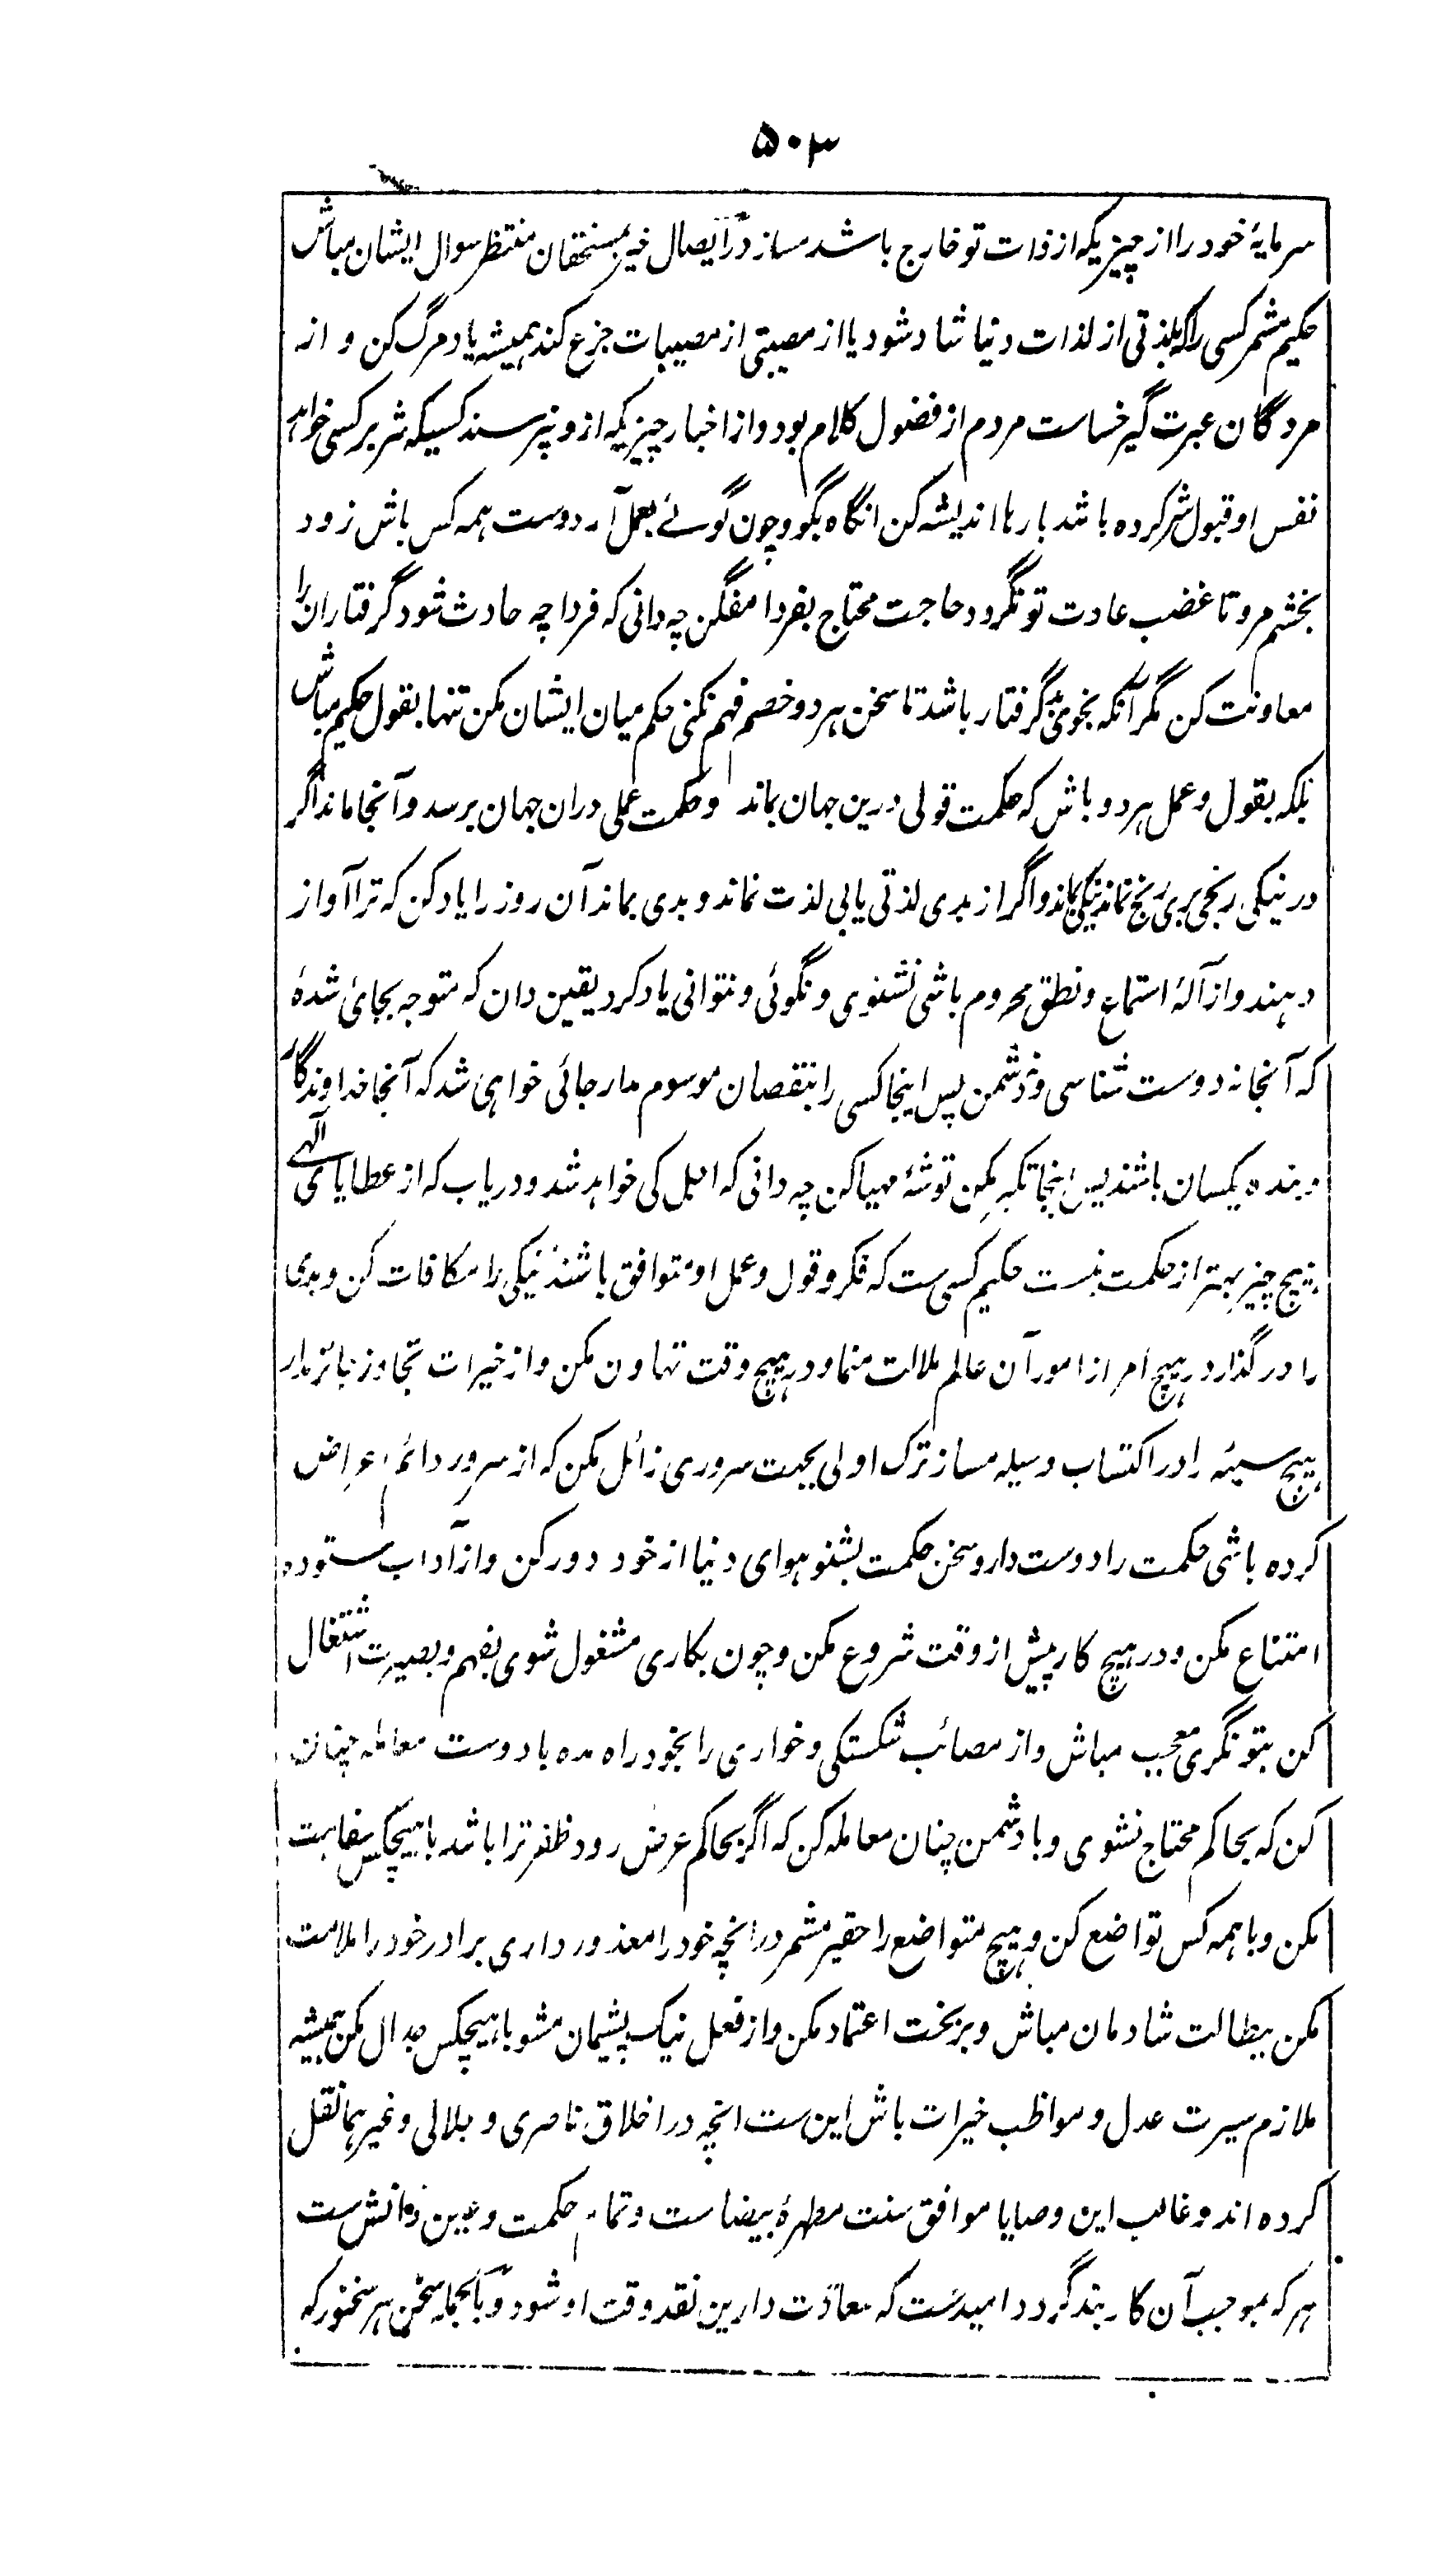 ۵۰۳
سرمایۂ خود را از چیزیکہ از ذات تو خارج باشد مساز در ایصال خیر بمستحقان منتظر سوال ایشان مباش
حکیم مشمر کسی را کہ بلذتی از لذات دنیا شاد شود یا از مصیبتی از مصیبات جزع کند ہمیشہ یاد مرگ کن و از
مردگان عبرت گیر خساست مردم از فضول کلام بود و از اخبار چیزیکہ ازو نپرسند کسیکہ شر بر کسی خواہد
نفس او قبول شر کردہ باشد بارہا اندیشہ کن انگاہ بگو و چون گوئے بعمل آر دوست ہمہ کس باش زود
بخشم مرو تا غضب عادت تو نگردد حاجت محتاج بفردا مفگن چہ دانی کہ فردا چہ حادث شود گرفتاران را
معاونت کن مگر آنکہ بخوی بد گرفتار باشد تا سخن ہر دو خصم فہم نکنی حکم میان ایشان مکن تنہا بقول حکیم مباش
بلکہ بقول و عمل ہر دو باش کہ حکمت قولی درین جہان بماند و حکمت عملی دران جہان برسد و آنجا ماند اگر
در نیکی رنجی بری رنج نماند نیکی بماند و اگر از بدی لذتی یابی لذت نماند و بدی بماند آن روز را یاد کن کہ ترا آواز
دہند و از آلۂ استماع و نطق محروم باشی نشنوی و نگوئی و نتوانی یاد کرد یقین دان کہ متوجہ بجائ شدۂ
کہ آنجا نہ دوست شناسی و نہ دشمن پس اینجا کسی را بنقصان موسوم مدار جائی خواہی شد کہ آنجا خداوندگار
و بندہ یکسان باشند پس اینجا تکبر مکن توشۂ مہیا کن چہ دانی کہ اجل کی خواہد شد و دریاب کہ از عطایای الٰہے
ہیچ چیز بہتر از حکمت نیست حکیم کسی ست کہ فکر و قول و عمل او متوافق باشند نیکی را مکافات کن و بدی
را در گذار در ہیچ امر از امور آن عالم ملالت منما و در ہیچ وقت تہاون مکن و از خیرات تجاوز جائز مدار
ہیچ سیئہ را در اکتساب وسیلہ مساز ترک اولی بجہت سروری زائل مکن کہ از سرور دائم اعراض
کردہ باشی حکمت را دوست دار و سخن حکمت بشنو ہوای دنیا از خود دور کن و از آداب ستودہ
امتناع مکن و در ہیچ کار پیش از وقت شروع مکن و چون بکاری مشغول شوی بفہم و بصیرت اشتغال
کن بتونگری معجب مباش و از مصائب شکستگی و خواری را بخود راہ مدہ با دوست معاملہ چنان
کن کہ بحاکم محتاج نشوی و با دشمن چنان معاملہ کن کہ اگر بحاکم عرض رود ظفر ترا باشد با ہیچکس سفاہت
مکن و با ہمہ کس تواضع کن و ہیچ متواضع را حقیر مشمر در انچہ خود را معذور داری برادر خود را ملامت
مکن ببطالت شادمان مباش و بر بخت اعتماد مکن و از فعل نیک پشیمان مشو با ہیچکس جدال مکن ہمیشہ
ملازم سیرت عدل و مواظب خیرات باش این ست انچہ در اخلاق ناصری و جلالی و غیرہما نقل
کردہ اند و غالب این وصایا موافق سنت مطہرۂ بیضا ست و تمام حکمت و عین دانش ست
ہر کہ بموجب آن کاربند گردد امیدست کہ سعادت دارین نقد وقت او شود و بالجملہ سخن ہر سخنور کہ